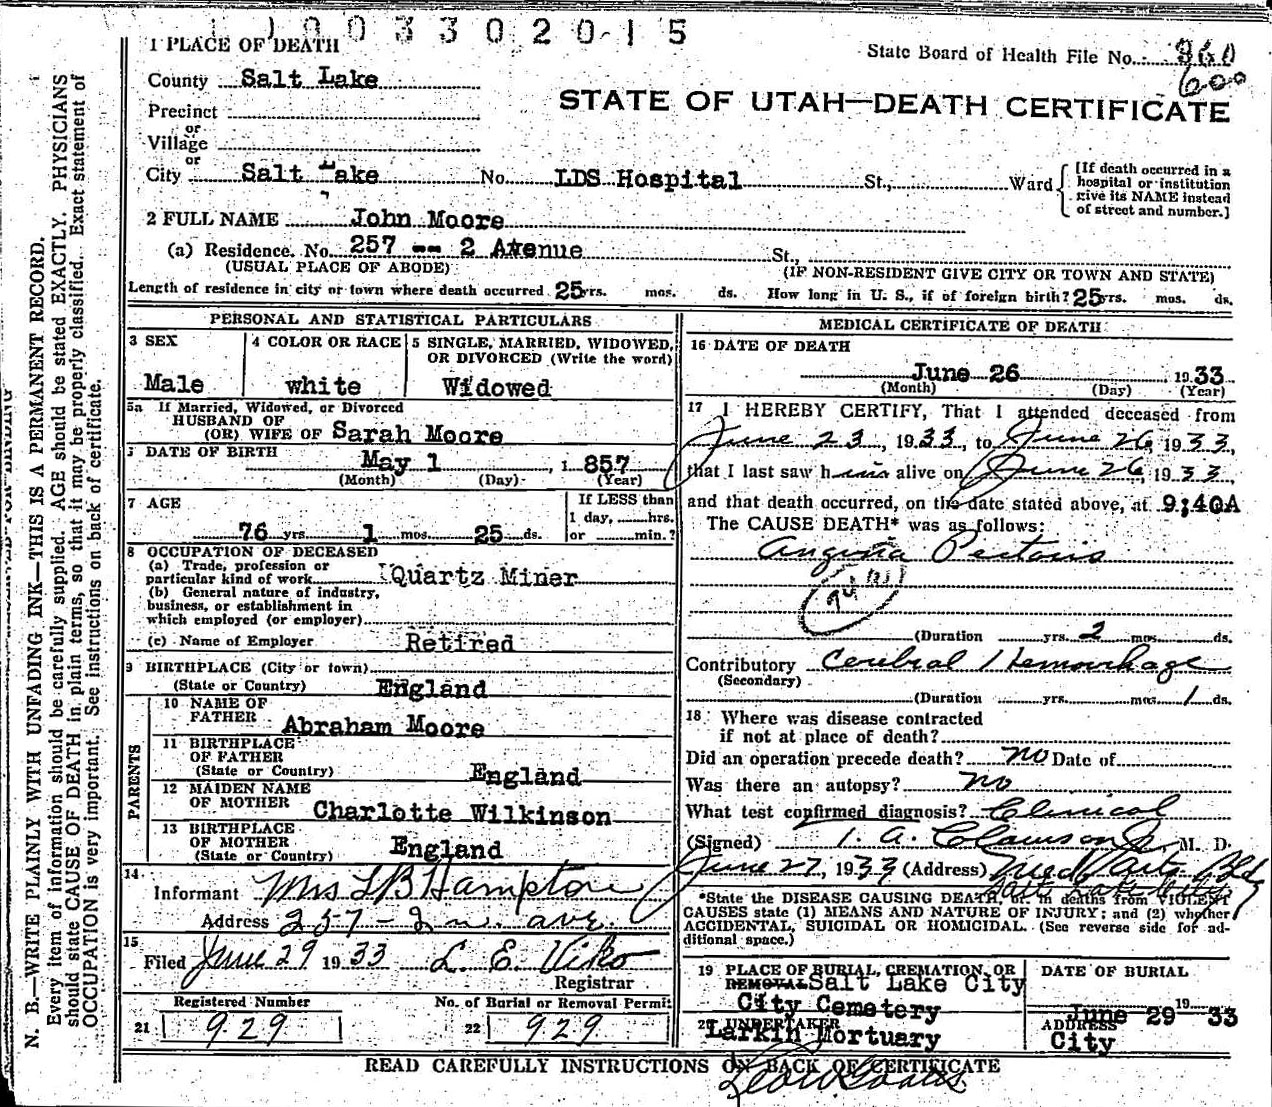 1 1 9 0 3 3 0 2 0 1 5
1 PLACE OF DEATH
State Board of Health File No.: 360
600
County Salt Lake
STATE OF UTAH—DEATH CERTIFICATE
Precinct
or
Village
or
City Salt Lake No. LDS Hospital St., Ward
[If death occurred in a
hospital or institution
give its NAME instead
of street and number.]
2 FULL NAME John Moore
(a) Residence. No. 257 -- 2 Avenue St.,
(USUAL PLACE OF ABODE) (IF NON-RESIDENT GIVE CITY OR TOWN AND STATE)
Length of residence in city or town where death occurred 25 yrs. mos. ds. How long in U. S., if of foreign birth? 25 yrs. mos. ds.
PERSONAL AND STATISTICAL PARTICULARS
3 SEX
Male
4 COLOR OR RACE
white
5 SINGLE, MARRIED, WIDOWED,
OR DIVORCED (Write the word)
Widowed
5a If Married, Widowed, or Divorced
HUSBAND OF
(OR) WIFE OF Sarah Moore
DATE OF BIRTH
May 1, 1857
(Month) (Day) (Year)
7 AGE
76 yrs. 1 mos. 25 ds.
If LESS than
1 day, hrs.
or min.?
8 OCCUPATION OF DECEASED
(a) Trade, profession or
particular kind of work Quartz Miner
(b) General nature of industry,
business, or establishment in
which employed (or employer)
(c) Name of Employer Retired
9 BIRTHPLACE (City or town)
(State or Country) England
PARENTS
10 NAME OF
FATHER Abraham Moore
11 BIRTHPLACE
OF FATHER
(State or Country) England
12 MAIDEN NAME
OF MOTHER Charlotte Wilkinson
13 BIRTHPLACE
OF MOTHER
(State or Country) England
14
Informant Mrs L B Hampton
Address 257-2n. ave.
15
Filed June 29 1933 L. E. Viko
Registrar
Registered Number
21 929
No. of Burial or Removal Permit
22 929
MEDICAL CERTIFICATE OF DEATH
16 DATE OF DEATH
June 26 1933
(Month) (Day) (Year)
17 I HEREBY CERTIFY, That I attended deceased from
June 23, 1933, to June 26, 1933,
that I last saw him alive on June 26, 1933,
and that death occurred, on the date stated above, at 9:40A
The CAUSE DEATH* was as follows:
Angina Pectoris
94
(Duration yrs. 2 mos. ds.
Contributory Cerebral Hemorrhage
(Secondary)
(Duration yrs. mos. 1 ds.
18 Where was disease contracted
if not at place of death?
Did an operation precede death? no Date of
Was there an autopsy? no
What test confirmed diagnosis? Clinical
(Signed) I. A. Clawson Jr., M. D.
June 27, 1933 (Address) Med Arts Bldg
Salt Lake City
*State the DISEASE CAUSING DEATH, or, in deaths from VIOLENT
CAUSES state (1) MEANS AND NATURE OF INJURY; and (2) whether
ACCIDENTAL, SUICIDAL OR HOMICIDAL. (See reverse side for ad-
ditional space.)
19 PLACE OF BURIAL, CREMATION, OR
REMOVAL Salt Lake City
City Cemetery
DATE OF BURIAL
June 29 1933
20 UNDERTAKER
Larkin Mortuary
ADDRESS
City
READ CAREFULLY INSTRUCTIONS ON BACK OF CERTIFICATE
N. B.—WRITE PLAINLY WITH UNFADING INK—THIS IS A PERMANENT RECORD.
Every item of information should be carefully supplied. AGE should be stated EXACTLY. PHYSICIANS
should state CAUSE OF DEATH in plain terms, so that it may be properly classified. Exact statement of
OCCUPATION is very important. See instructions on back of certificate.